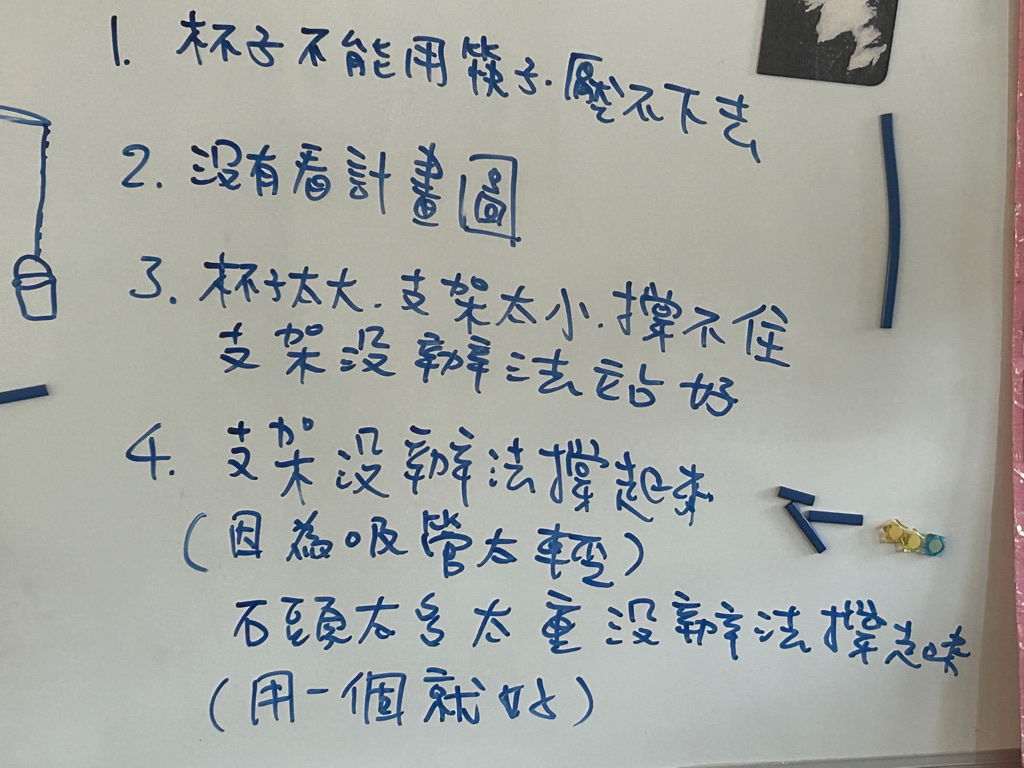 1. 杯子不能用筷子.壓不下去
2. 沒有看計畫圖
3. 杯子太大.支架太小.撐不住
支架沒辦法站好
4. 支架沒辦法撐起來
(因為吸管太輕)
石頭太多太重沒辦法撐起來
(用一個就好)